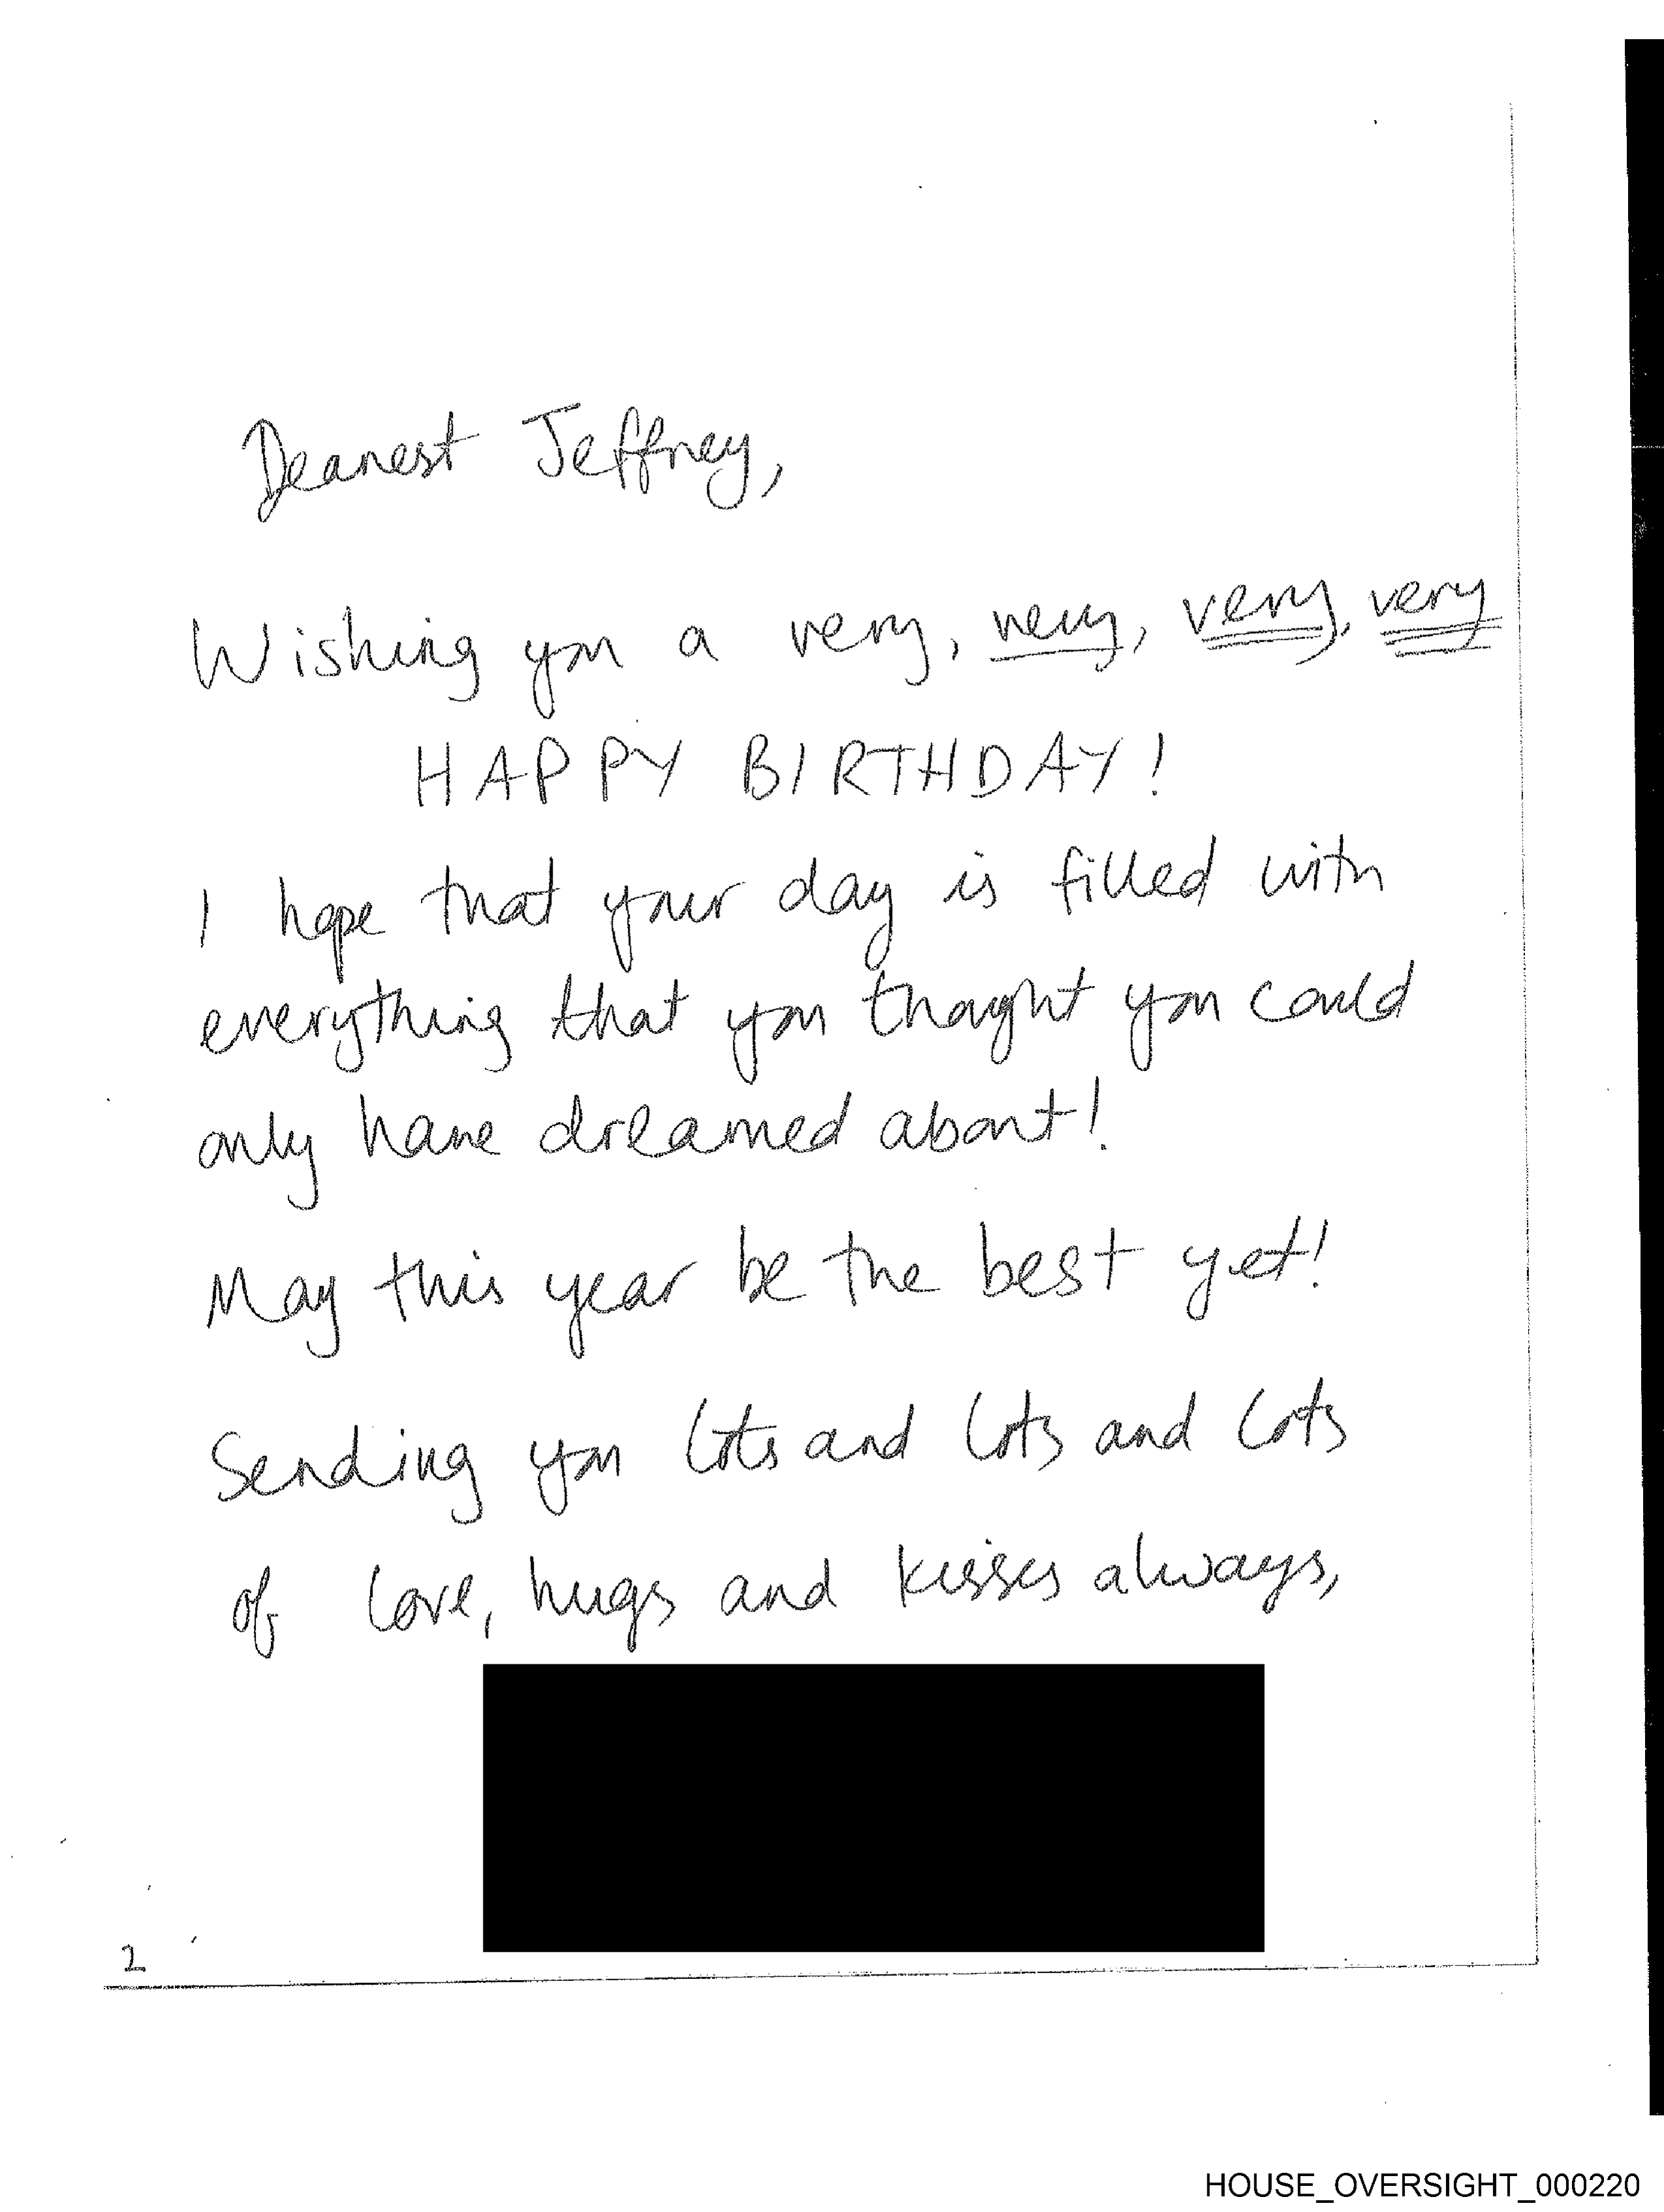 Dearest Jeffrey,
Wishing you a very, very, very, very
HAPPY BIRTHDAY!
I hope that your day is filled with
everything that you thought you could
only have dreamed about!
May this year be the best yet!
Sending you lots and lots and lots
of love, hugs and kisses always,
2
HOUSE_OVERSIGHT_000220